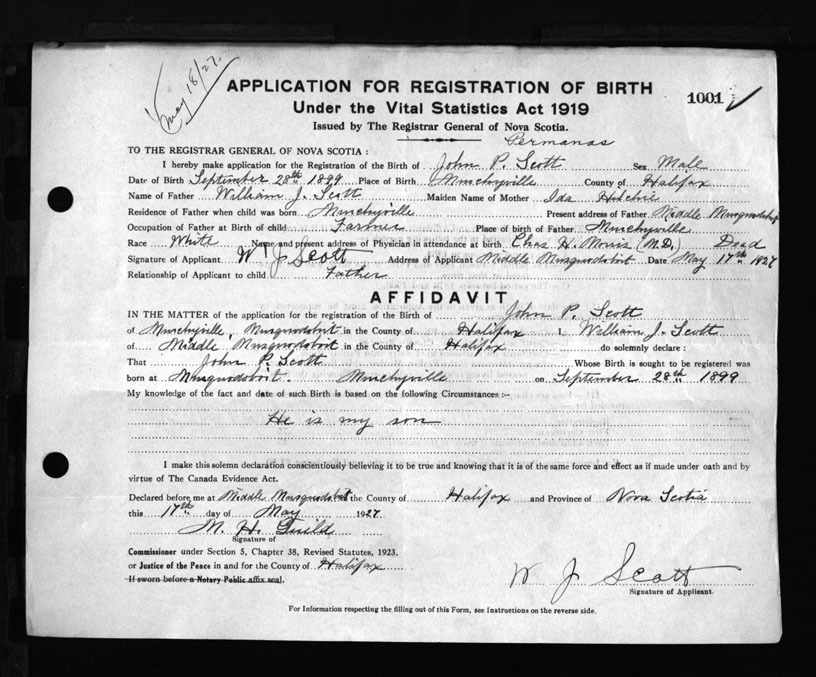 May 18/27.
APPLICATION FOR REGISTRATION OF BIRTH
1001
Under the Vital Statistics Act 1919
Issued by The Registrar General of Nova Scotia.
Permanas
TO THE REGISTRAR GENERAL OF NOVA SCOTIA :
I hereby make application for the Registration of the Birth of John P. Scott Sex Male
Date of Birth September 28th 1899 Place of Birth County of Halifax
Name of Father William J. Scott Maiden Name of Mother Ida
Residence of Father when child was born Present address of Father Middle
Occupation of Father at Birth of child Farmer Place of birth of Father
Race White Name and present address of Physician in attendance at birth Chas H. Morris (M.D.) Dead
Signature of Applicant W J Scott Address of Applicant Middle Musquodoboit Date May 17th 1927
Relationship of Applicant to child Father
AFFIDAVIT
IN THE MATTER of the application for the registration of the Birth of John P. Scott
of Musquodoboit in the County of Halifax I, William J. Scott
of Middle Musquodoboit in the County of Halifax do solemnly declare :
That John P. Scott Whose Birth is sought to be registered was
born at Musquodoboit. on September 28th 1899
My knowledge of the fact and date of such Birth is based on the following Circumstances :-
He is my son
I make this solemn declaration conscientiously believing it to be true and knowing that it is of the same force and effect as if made under oath and by
virtue of The Canada Evidence Act.
Declared before me at Middle Musquodoboit the County of Halifax and Province of Nova Scotia
this 17th day of May 1927
M. H. Guild
Signature of
Commissioner under Section 5, Chapter 38, Revised Statutes, 1923.
or Justice of the Peace in and for the County of Halifax
If sworn before a Notary Public affix seal.
W J Scott
Signature of Applicant.
For Information respecting the filling out of this Form, see Instructions on the reverse side.